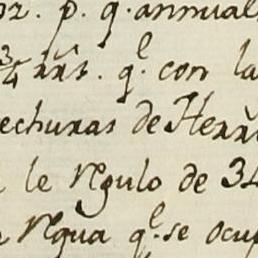 p. q. annual
3/4 rrs. q.^l con la
echuras de Herr
le Rgulo de 34
Rgūa q.^l se ocup